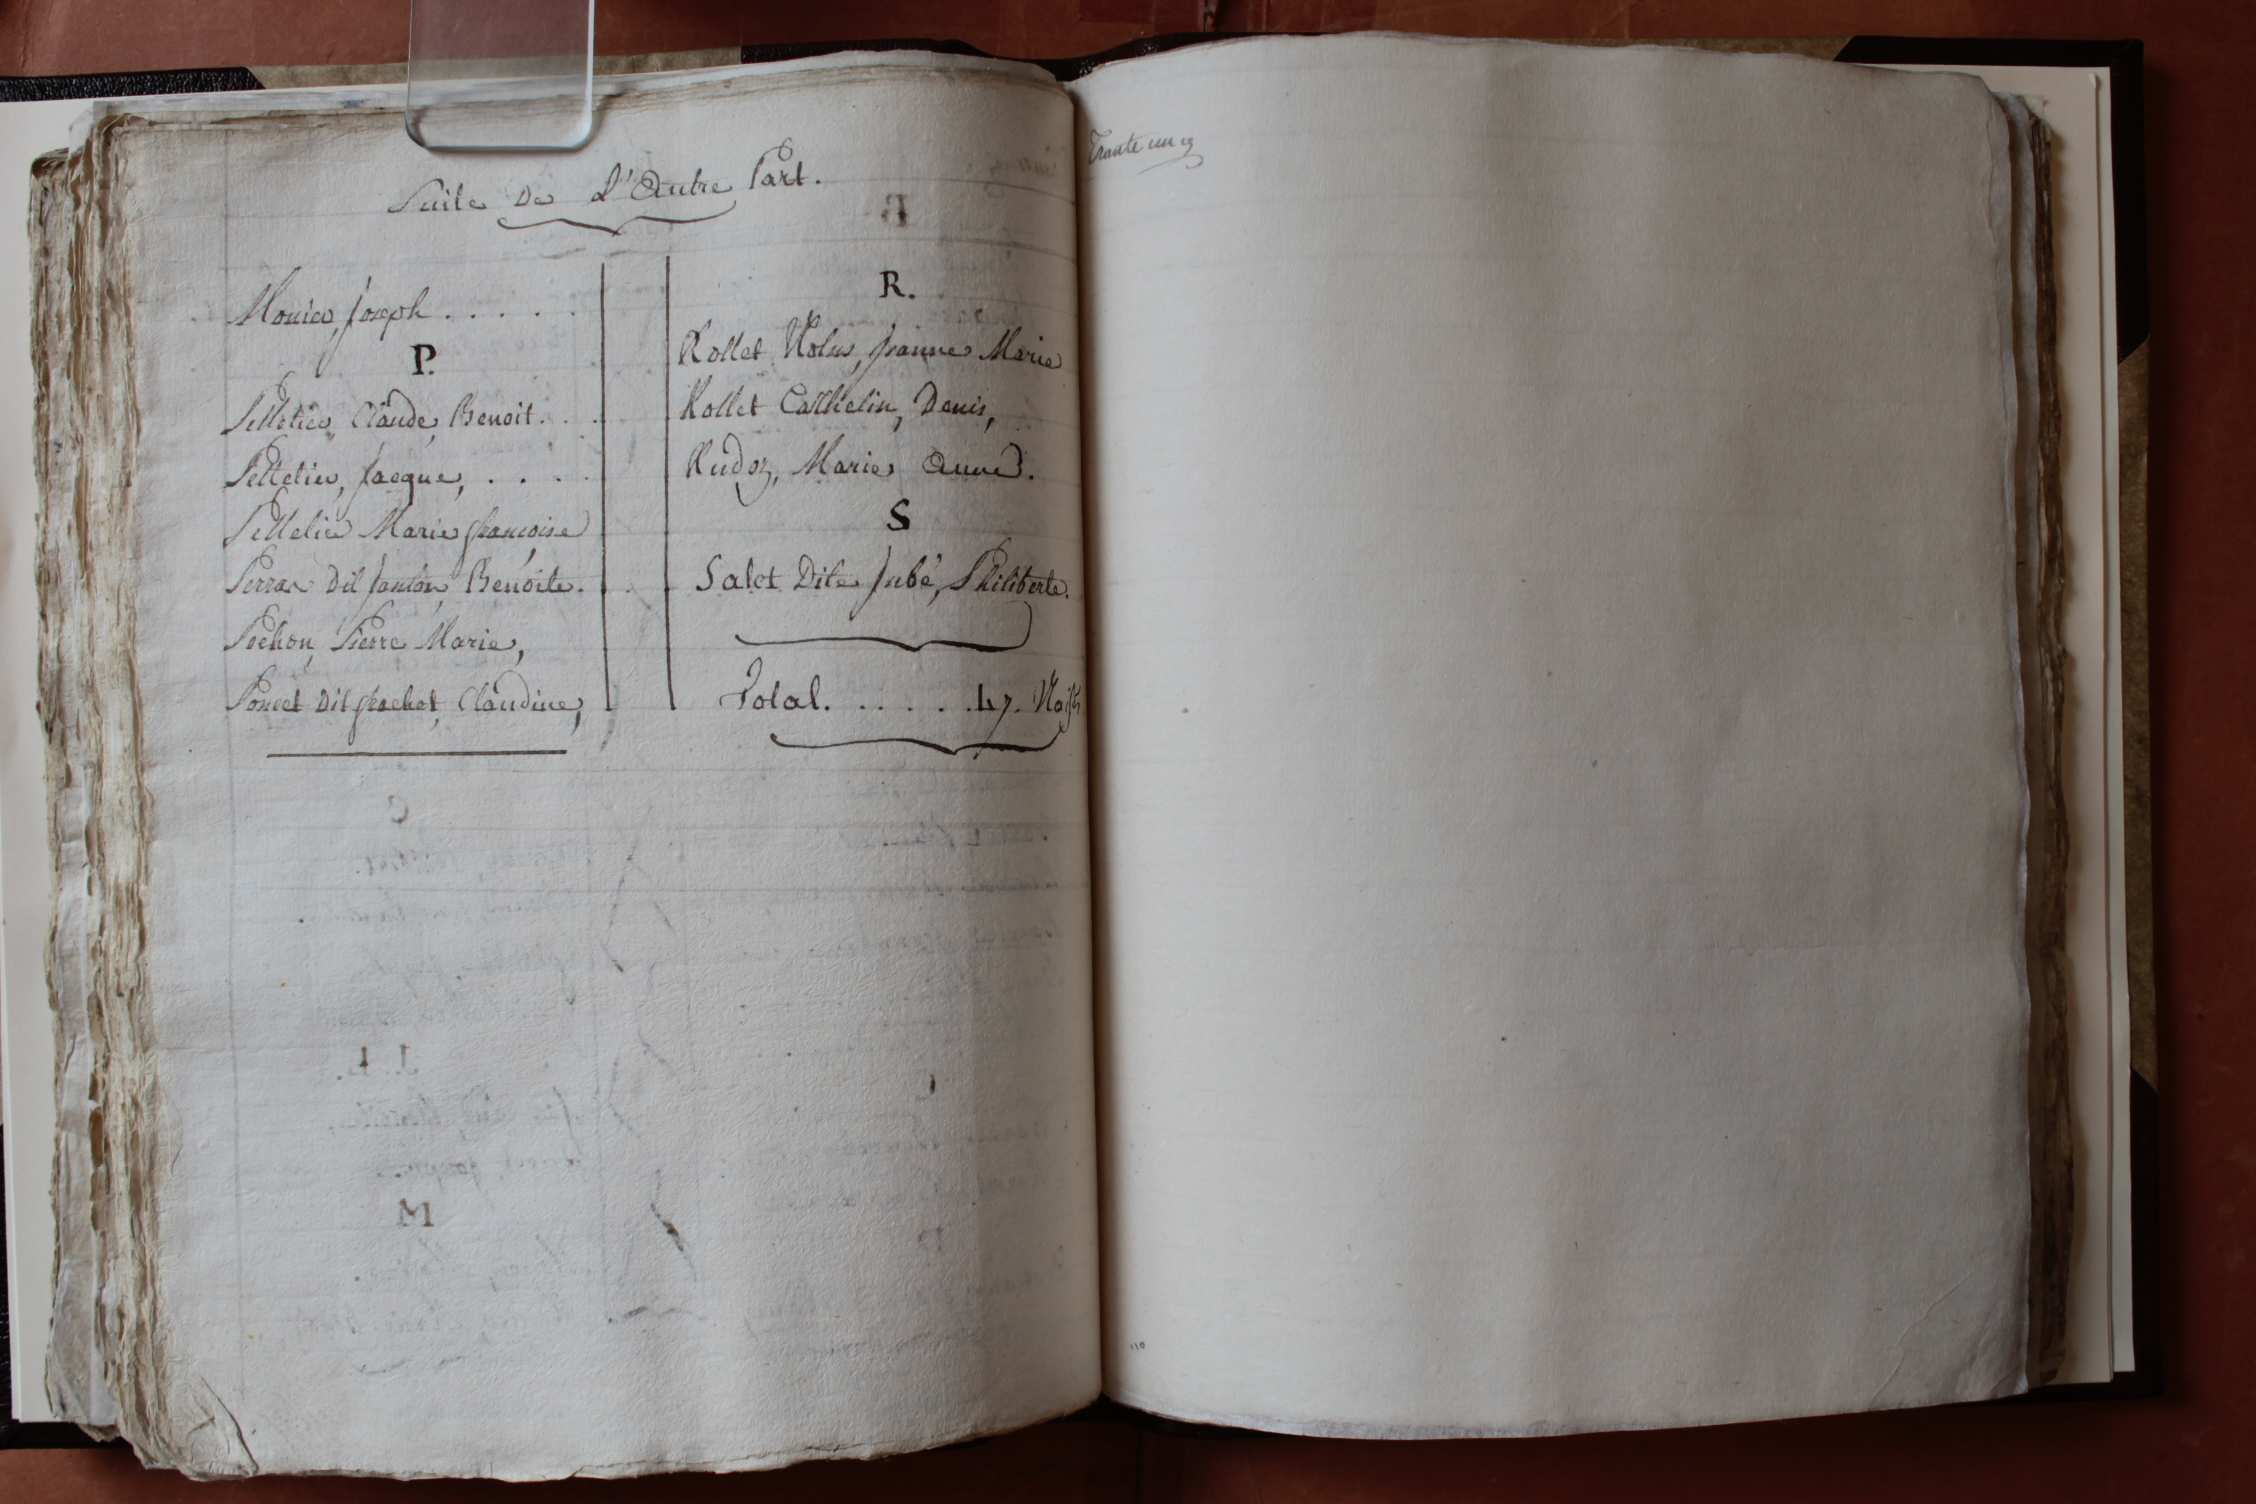 Suite De L'Autre Part.
Monier, Joseph . . . . .
P.
Pelletier, Claude, Benoit. . .
Pelletier, Jacque, . . . .
Pelletier Marie françoise
Perras Dit Janton, Benoite.
Pochon, Pierre Marie,
Poncet Dit frachet, Claudine,
R.
Rollet Nolus, Jeanne Marie
Rollet Cathelin, Denis,
Rudoz, Marie Anne.
S
Salet Dite Jubé, Philiberte.
Total. . . . . . 47. Naiss
Trante un
110